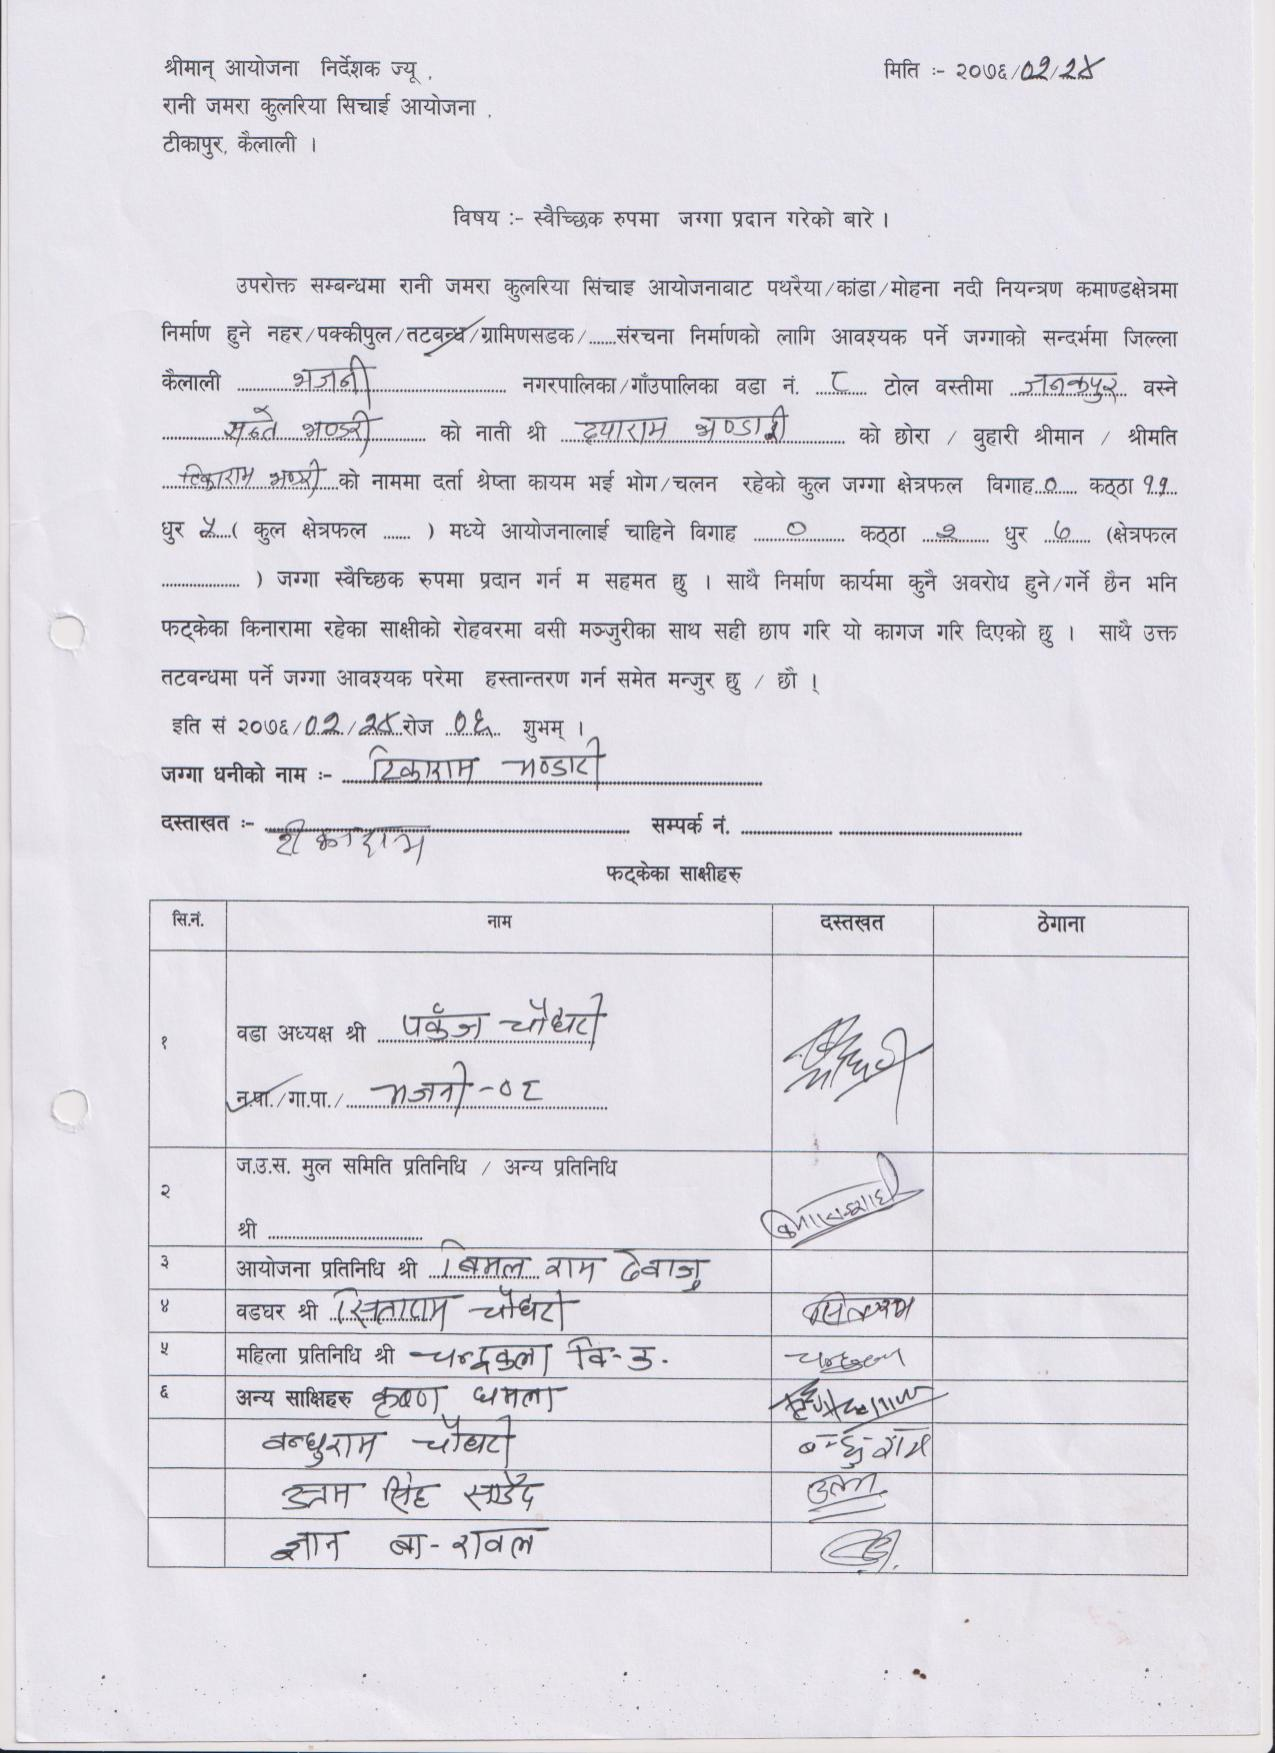 श्रीमान् आयोजना निर्देशक ज्यू ,
मिति :- २०७६/०२/२५
रानी जमरा कुलरिया सिचाई आयोजना ,
टीकापुर, कैलाली ।
विषय :- स्वैच्छिक रुपमा जग्गा प्रदान गरेको बारे ।
उपरोक्त सम्बन्धमा रानी जमरा कुलरिया सिंचाइ आयोजनाबाट पथरैया/कांडा/मोहना नदी नियन्त्रण कमाण्डक्षेत्रमा
निर्माण हुने नहर/पक्कीपुल/तटबन्ध/ग्रामिणसडक/......संरचना निर्माणको लागि आवश्यक पर्ने जग्गाको सन्दर्भमा जिल्ला
कैलाली भजनी नगरपालिका/गाँउपालिका वडा नं. ८ टोल वस्तीमा जनकपुर वस्ने
भण्डारी को नाती श्री दयाराम भण्डारी को छोरा / वुहारी श्रीमान / श्रीमति
टिकाराम भण्डारी को नाममा दर्ता श्रेप्ता कायम भई भोग/चलन रहेको कुल जग्गा क्षेत्रफल विगाह ० कठ्ठा ११
धुर ५ ( कुल क्षेत्रफल ...... ) मध्ये आयोजनालाई चाहिने विगाह ० कठ्ठा २ धुर ७ (क्षेत्रफल
.................. ) जग्गा स्वैच्छिक रुपमा प्रदान गर्न म सहमत छु । साथै निर्माण कार्यमा कुनै अवरोध हुने/गर्ने छैन भनि
फट्केका किनारामा रहेका साक्षीको रोहवरमा वसी मञ्जुरीका साथ सही छाप गरि यो कागज गरि दिएको छु । साथै उक्त
तटवन्धमा पर्ने जग्गा आवश्यक परेमा हस्तान्तरण गर्न समेत मन्जुर छु / छौ ।
इति सं २०७६/०२/२५ रोज ०६ शुभम् ।
जग्गा धनीको नाम :- टिकाराम भण्डारी
दस्ताखत :- टीकाराम सम्पर्क नं. ....................
फट्केका साक्षीहरु
सि.नं. नाम दस्तखत ठेगाना
१ वडा अध्यक्ष श्री पर्कज चौधरी
न.पा./गा.पा./ भजनी-०८
२ ज.उ.स. मुल समिति प्रतिनिधि / अन्य प्रतिनिधि
श्री ....................
३ आयोजना प्रतिनिधि श्री बिमल राम देवाजु
४ वडघर श्री सिताराम चौधरी सिताराम
५ महिला प्रतिनिधि श्री चन्द्रकला वि-क. चन्द्रकला
६ अन्य साक्षिहरु कृष्ण धमला
बन्धुराम चौधरी बन्धुराम
उत्तम सिंह साउँद उत्तम
ज्ञान बा-रावल